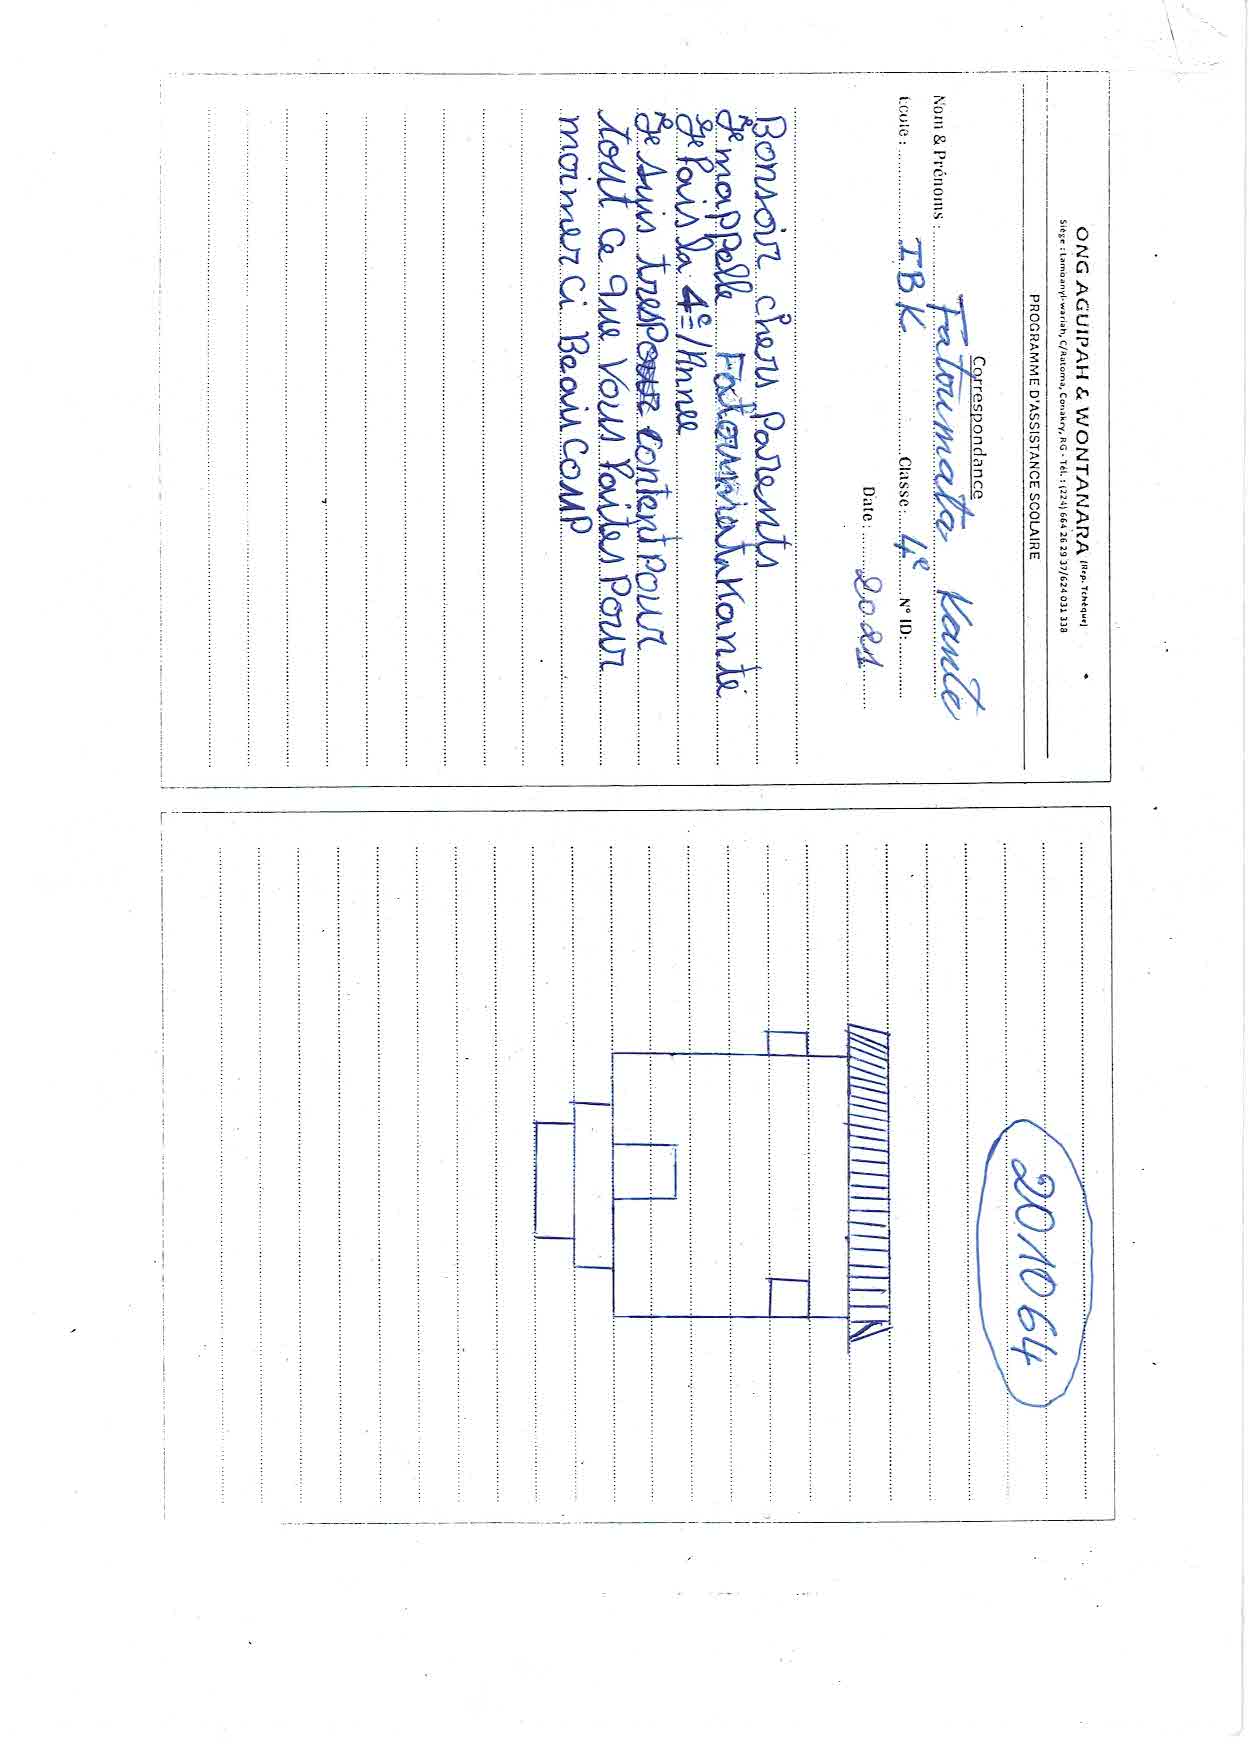 ONG AGUIPAH & WONTANARA (Rep. Tchèque)
Siège : Lamoanyi-wariah, C/Ratoma, Conakry, RG - Tél. : (224) 664 26 29 37/624 031 338
PROGRAMME D'ASSISTANCE SCOLAIRE
Correspondance
Nom & Prénoms : Fatoumata Kanté
Ecole : I B K Classe: 4e N° ID:
Date : 2021
Bonsoir chers Parents
Je mappelle Fatoumata Kanté
Je fais la 4e/Annee
Je suis tres content Pour
tout ce que vous faites Pour
moi merci Beaucoup
201064